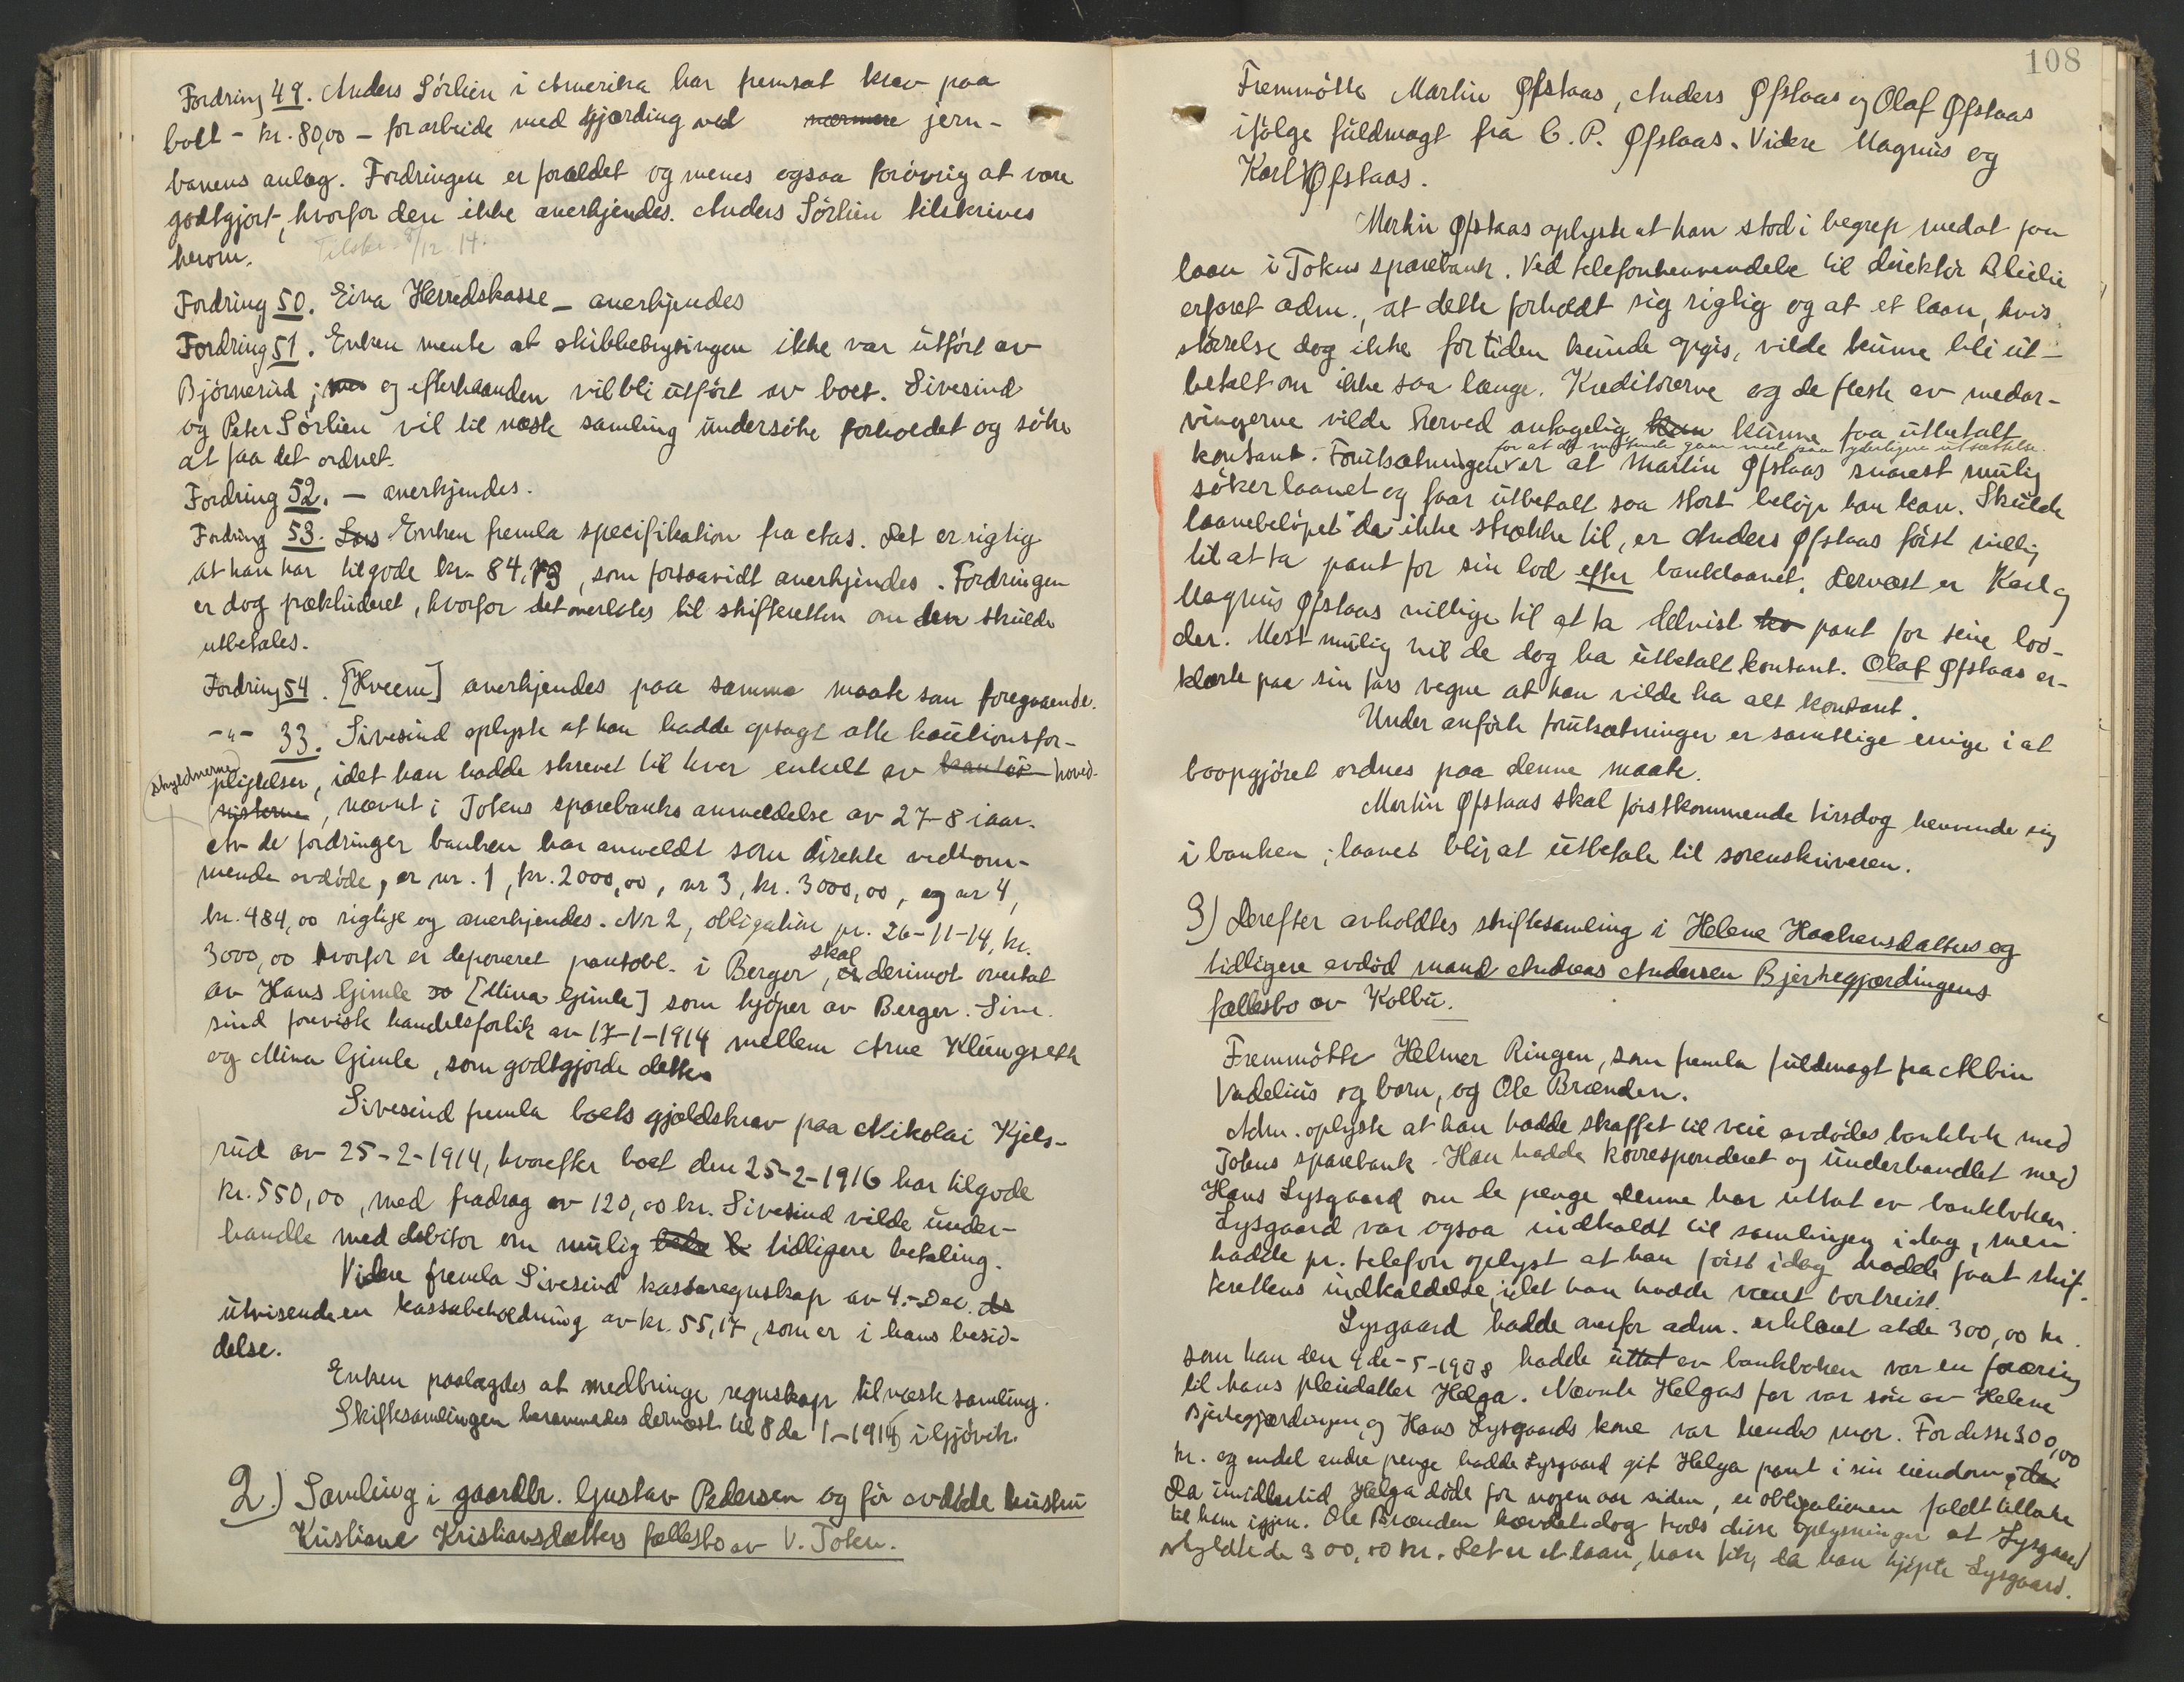 Fordring 49. Anders Sörlien i Amerika har fremsat krav paa
boet - kr. 80,00 - for arbeide med gjærding ved nærmere jern-
banens anlæg. Fordringen er forældet og menes ogsaa forövrig at være
godtgjort, hvorfor den ikke anerkjendes. Anders Sörlien tilskrives
herom. Tilskr. 8/12. 14.
Fordring 50. Eina Herredskasse - anerkjendes
Fordring 51. Enken mente at skibbebrytingen ikke var utfört av
Björnerud; men og efterhaanden vil bli utfört av boet. Sivesind
og Peter Sörlien vil til næste samling undersöke forholdet og söke
at faa det ordnet.
Fordring 52. - anerkjendes.
Fordring 53. Lars Enken fremla specifikation fra Aas. Det er rigtig
at han har tilgode kr. 84,73, som forsaavidt anerkjendes. Fordringen
er dog prækluderet, hvorfor det overlates til skifteretten om den skulde
utbetales.
Fordring 54. [Kveem] anerkjendes paa samme maate som foregaaende.
-"- 33. Sivesind oplyste at han hadde opsagt alle kautionsfor-
pligtelser, idet han hadde skrevet til hver enkelt av kautio hoved-
skyldnerne
sisterne, nævnt i Totens sparebanks anmeldelse av 27-8 iaar.
Av de fordringer banken har anmeldt som direkte vedkom-
mende avdöde, er nr. 1, kr. 2000,00, nr 3, kr. 3000,00, og nr 4,
kr. 484,00 rigtige og anerkjendes. Nr 2, obligation pr. 26-11-14, kr.
3000,00 hvorfor er deponeret pantobl. i Berger, skal er derimot overtat
av Hans Gimle so [Mina Gimle] som kjöper av Berger. Sive-
sind foreviste handelsforlik av 17-1-1914 mellem Arne Klüngseth
og Mina Gimle, som godtgjorde dette.
Sivesind fremla boets gjældskrav paa Nikolai Kjels-
rud av 25-2-1914, hvorefter boet den 25-2-1916 har tilgode
kr. 550,00, med fradrag av 120,00 kr. Sivesind vilde under-
handle med debitor om mulig beta li tidligere betaling.
Videre fremla Sivesind kasseregnskap av 4. Dec. ds
utvisende en kassabeholdning av kr. 55,17, som er i hans besid-
delse.
Enken paalægdes at medbringe regnskap til næste samling.
Skiftesamlingen berammedes dernæst til 8de 1-1915 i Gjövik.
2.) Samling i gaardbr. Gustav Pedersen og för avdöde hustru
Kristiane Kristiansdatters fællesbo av V. Toten.
108
Fremmötte Martin Øfstaas, Anders Øfstaas og Olaf Øfstaas
ifölge fuldmagt fra C. P. Øfstaas. Videre Magnus og
Karl Øfstaas.
Martin Øfstaas oplyste at han stod i begrep med at faa
laan i Totens sparebank. Ved telefonhenvendelse til direktör Blilie
erfaret adm., at dette forholdt sig rigtig og at et laan, hvis
störrelse dog ikke for tiden kunde opgis, vilde kunne bli ut-
betalt om ikke saa længe. Kreditorerne og de fleste av medar-
vingerne vilde herved antagelig kun kunne faa utbetalt
for at de möttende gaar med paa yderligere utsættelse
kontant. Forutsætningen er at Martin Øfstaas snarest mulig
söker laanet og faar utbetalt saa stort belöp han kan. Skulde
laanebelöpet da ikke strække til, er Anders Øfstaas först villig
til at ta pant for sin lod efter banklaanet. Dernæst er Karl og
Magnus Øfstaas villige til at ta delvist ha pant for sine lod-
der. Mest mulig vil de dog ha utbetalt kontant. Olaf Øfstaas er-
klærte paa sin fars vegne at han vilde ha alt kontant.
Under anförte forutsætninger er samtlige enige i at
boopgjöret ordnes paa denne maate.
Martin Øfstaas skal förstkommende tirsdag henvende sig
i banken; laanet blir at utbetale til sorenskriveren.
3) Derefter avholdtes skiftesamling i Helene Haakensdatters og
tidligere avdöd mand Andreas Andersen Bjerkegjærdingens
fællesbo av Kolbu.
Fremmötte Helmer Ringen, som fremla fuldmagt fra Albin
Vadelius og barn, og Ole Brænden.
Adm. oplyste at han hadde skaffet til veie avdödes bankbok med
Totens sparebank. Han hadde korresponderet og underhandlet med
Hans Lysgaard om de penge denne har uttat av bankboken.
Lysgaard var ogsaa indkaldt til samlingen idag, men
hadde pr. telefon oplyst at han först idag hadde faat skif-
terettens indkaldelse, idet han hadde været bortreist.
Lysgaard hadde overfor adm. erklæret at de 300,00 kr.
som han den 9de-5-1908 hadde uttat av bankboken var en foræring
til hans pleiedatter Helga. Nævnte Helgas far var sön av Helene
Bjerkegjærdingen, og Hans Lysgaards kone var hendes mor. For disse 300,00
kr. og endel andre penge hadde Lysgaard git Helga pant i sin eiendom; da
Da imidlertid Helga döde for nogen aar siden, er obligationen faldt tilbake
til ham igjen. Ole Brænden hævdet dog trods disse oplysninger at Lysgaard
skyldte de 300,00 kr. Det er et laan, han fik, da han kjöpte Lysgaard.